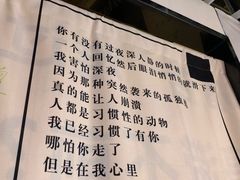 你有没有过夜深人静的时候
一个人回忆然后眼泪悄悄流下来
我害怕深夜
因为那种突然袭来的孤独
真的能让人崩溃
人都是习惯性的动物
我已经习惯了有你
哪怕你走了
但是在我心里